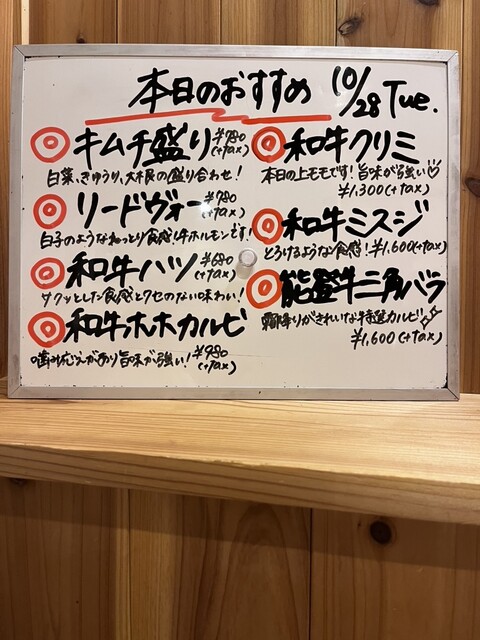 本日のおすすめ 10/28 Tue.
◎キムチ盛り ¥780(+tax)
白菜、きゅうり、大根の盛り合わせ!
◎リードヴォー ¥980(+tax)
白子のようなねっとり食感!牛ホルモンです!
◎和牛ハツ ¥680(+tax)
サクッとした食感とクセのない味わい!
◎和牛ホホカルビ
噛み応えがあり旨味が強い! ¥980(+tax)
◎和牛クリミ
本日の上モモです!旨味が強い♡
¥1,300(+tax)
◎和牛ミスジ
とろけるような食感! ¥1,600(+tax)
◎能登牛三角バラ
霜降りがきれいな特選カルビ
¥1,600(+tax)